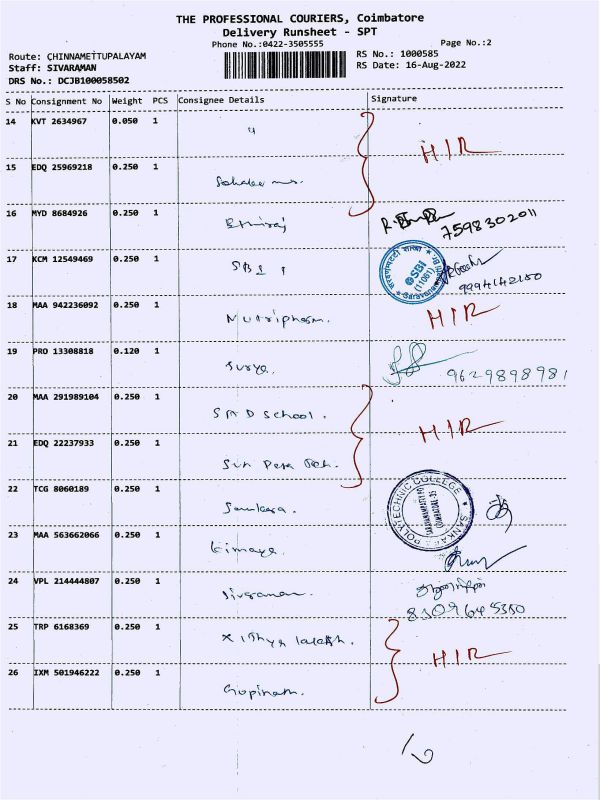 THE PROFESSIONAL COURIERS, Coimbatore
Delivery Runsheet - SPT
Phone No.:0422-3505555 Page No.:2
Route: CHINNAMETTUPALAYAM RS No.: 1000585
Staff: SIVARAMAN RS Date: 16-Aug-2022
DRS No.: DCJB100058502
S No Consignment No Weight PCS Consignee Details Signature
14 KVT 2634967 0.050 1 "
HIR
15 EDQ 25969218 0.250 1
16 MYD 8684926 0.250 1
7598302011
17 KCM 12549469 0.250 1 SBI
SBI
(11061)
9994142150
18 MAA 942236092 0.250 1 Nutripharm. HIR
19 PRO 13308818 0.120 1 Surya. 9629898981
20 MAA 291989104 0.250 1 School.
HIR
21 EDQ 22237933 0.250 1
22 TCG 8060189 0.250 1 Sankara.
POLYTECHNIC COLLEGE
23 MAA 563662066 0.250 1
24 VPL 214444807 0.250 1 Sivaraman.
8309645350
25 TRP 6168369 0.250 1
HIR
26 IXM 501946222 0.250 1 Gopinath.